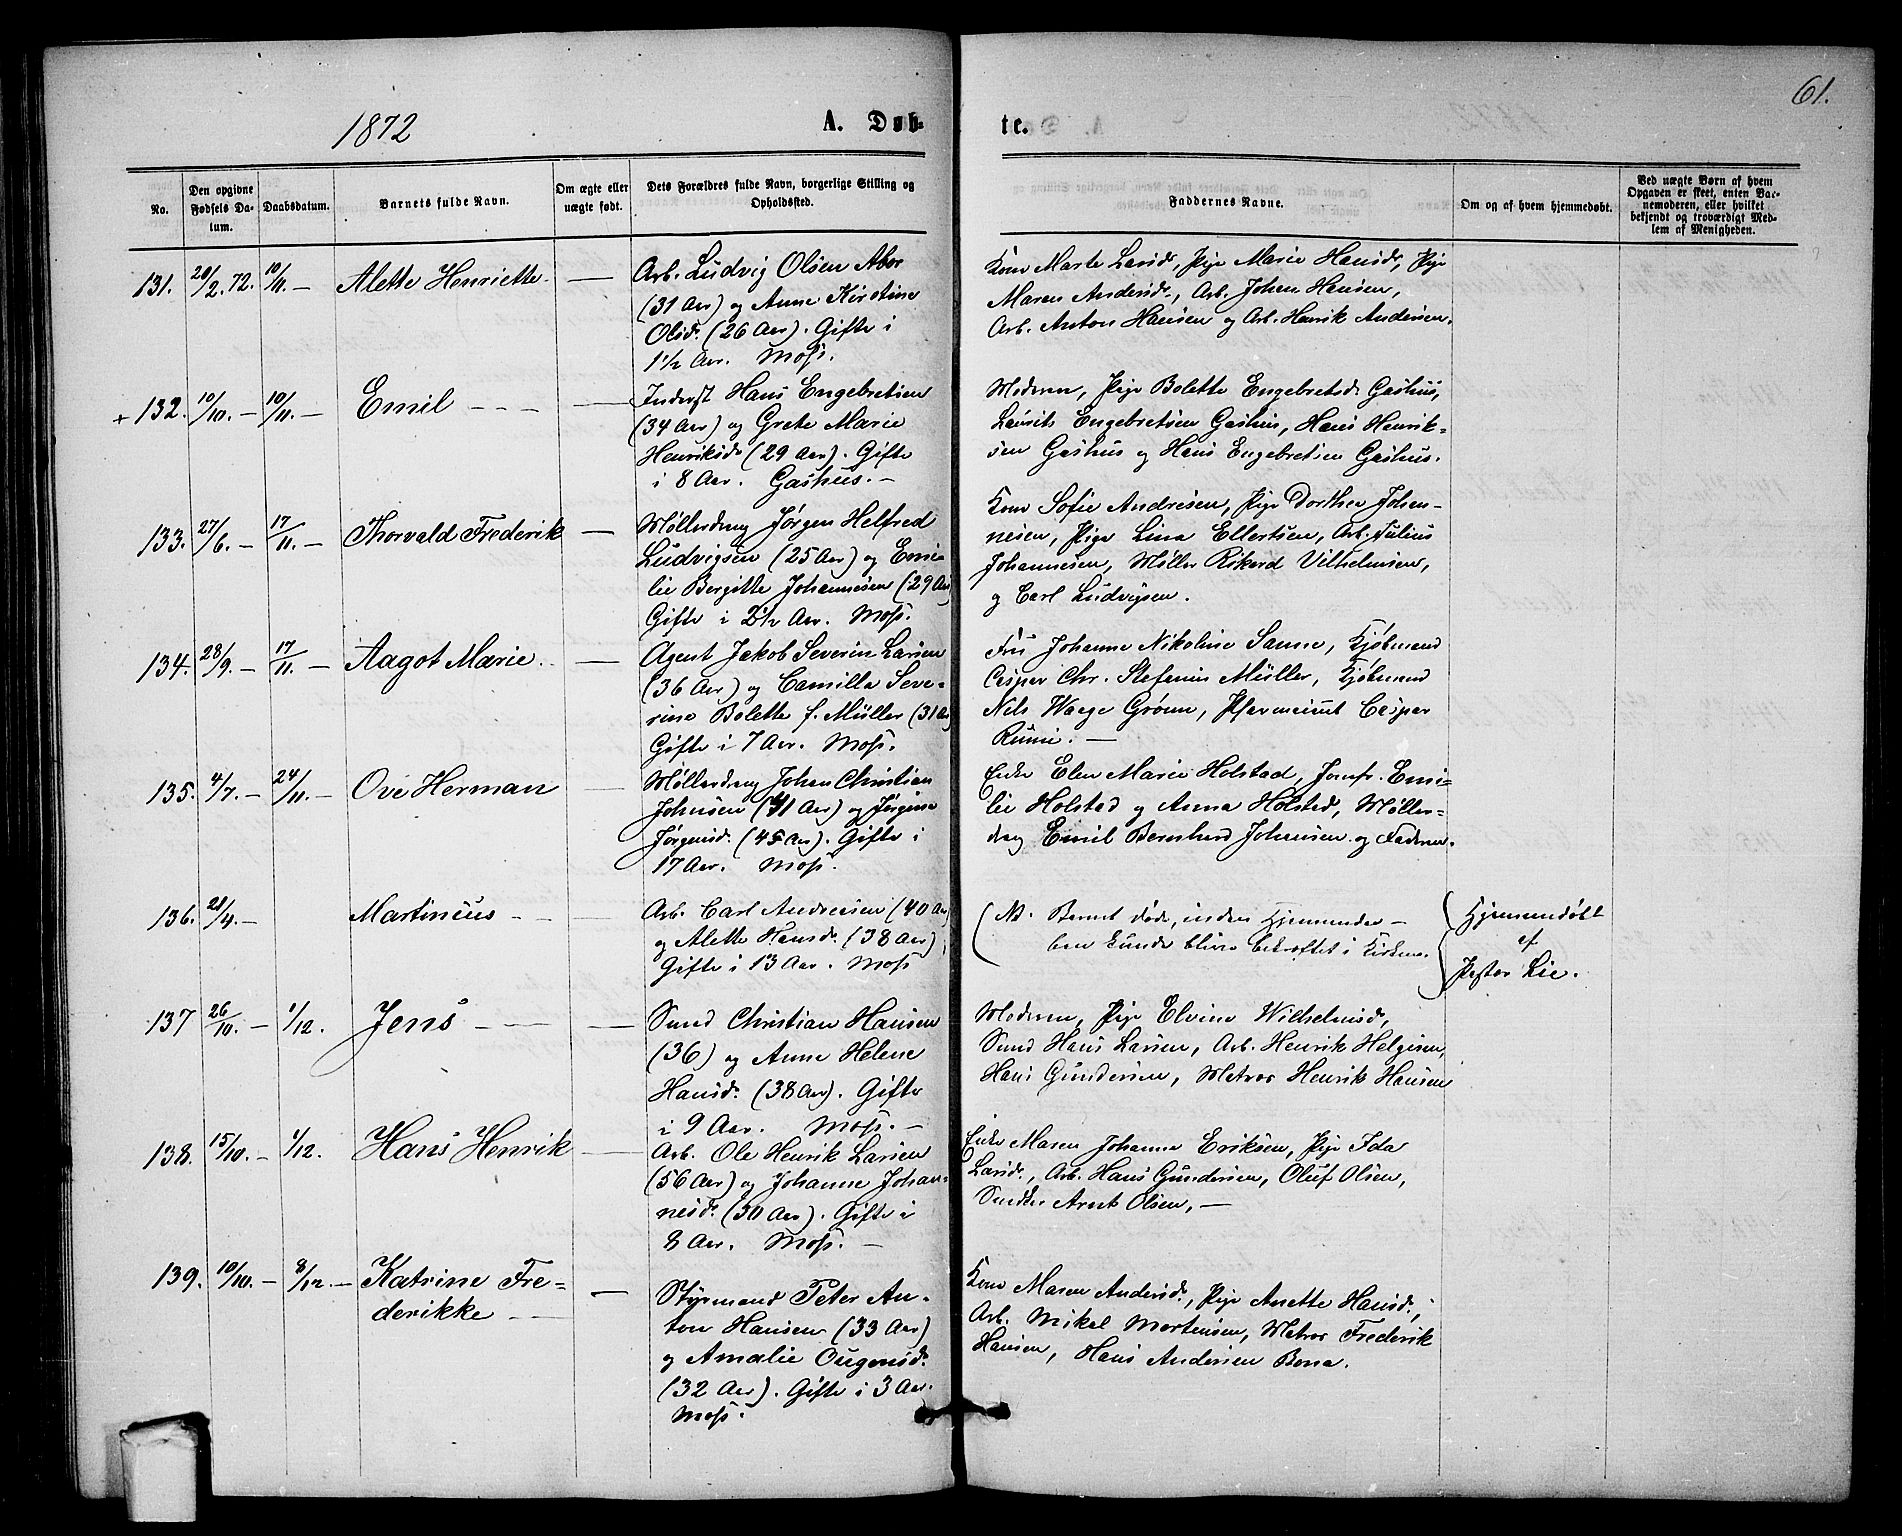 61.
1872
A. Døb-
te.
No.
Den opgivne Fødsels Da-
tum.
Daabsdatum.
Barnets fulde Navn.
Om ægte eller
uægte født.
Dets Forældres fulde Navn, borgerlige Stilling og
Opholdssted.
Faddernes Navne.
Om og af hvem hjemmedøbt.
Ved uægte Børn af hvem
Opgaven er skeet, enten Bar-
nemoderen, eller hvilket
bekjendt og troværdigt Med-
lem af Menigheden.
131. 20/2. 72. 10/11. — Alette Henriette. —
Arb. Ludvig Olsen
(31 Aar) og Anne Kirstine
Olsd. (26 Aar). Gifte i
1½ Aar. Moss.
Kone Marte Larsd., Pige Marie Hansd., Pige
Maren Andersd., Arb. Johan Hansen,
Arb. Anton Hansen og Arb. Henrik Andersen.
+ 132. 10/10. — 10/11. — Emil — — — —
Inderst Hans Engebretsen
(34 Aar) og Grete Marie
Henriksd. (29 Aar). Gifte
i 8 Aar. Gashus. —
Moderen, Pige Bolette Engebretsd. Gashus,
Laurits Engebretsen Gashus, Hans Henrik-
sen Gashus og Hans Engebretsen Gashus.
133. 27/6. — 17/11. — Thorvald Frederik —
Møllerdreng Jørgen Helfred
Ludvigsen (25 Aar) og Emi-
lie Bergitte Johannesen (29 Aar)
Gifte i 2½ Aar. Moss.
Kone Sofie Andresen, Pige Dorthea Johan-
nesen, Pige Lina Ellertsen, Arb. Julius
Johannesen, Møller Rikard Vilhelmsen,
og Carl Ludvigsen.
134. 28/9. — 17/11. — Aagot Marie. —
Agent Jakob Severin Larsen
(36 Aar) og Camilla Seve-
rine Bolette f. Müller (31 Aar)
Gifte i 7 Aar. Moss.
Fru Johanne Nikoline Sanne, Kjøbmand
Casper Chr. Stefanus Müller, Kjøbmand
Nels Waage Grønn, Pharmaceut Casper
—
135. 4/7. — 24/11. — Ove Herman —
Møllerdreng Johan Christian
Johnsen (41 Aar) og Jørgine
Jørgensd. (45 Aar). Gifte i
17 Aar. Moss.
Enke Elen Marie Holstad, Jomfr. Emi-
lie Holstad og Anna Holstad, Møller-
dreng Emil Bernhard Johansen og Faderen.
136. 21/4. — Martinius — —
Arb. Carl Andreasen (40 Aar)
og Alette Hansd. (38 Aar),
Gifte i 13 Aar. Moss
(NB. Barnet døde, inden Hjemmedaa-
ben kunde blive bekræftet i Kirken.
Hjemmedøbt
af
Pastor Lie.
137 26/10. — 1/12. Jens — — — —
Smed Christian Hansen
(36) og Anne Helene
Hansd. (38 Aar). Gifte
i 9 Aar. Moss. —
Moderen, Pige Elvine Wilhelmsd.,
Smed Hans Larsen, Arb. Henrik Helgesen,
Hans Gundersen, Matros Henrik Hansen
138. 15/10. — 1/12. Hans Henrik —
Arb. Ole Henrik Larsen
(56 Aar) og Johanne Johan-
nesd. (30 Aar). Gifte i
8 Aar. Moss. —
Enke Maren Johanne Eriksen, Pige Ida
Larsd., Arb. Hans Gundersen, Oluf Olsen,
Snedker Arnt Olsen, —
139. 10/10. — 8/12. — Katrine Fre=
derikke — —
Styrmand Peter An-
ton Hansen (33 Aar)
og Amalie Ougensd.
(32 Aar). Gifte i 3 Aar.
Moss.
Kone Maren Andersd., Pige Anette Hansd.,
Arb. Mikal Mortensen, Matros Frederik
Hansen, Hans Andersen